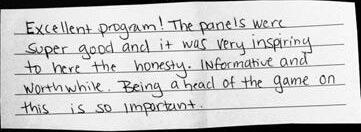 Excellent program! The panels were
super good and it was very inspiring
to here the honesty. Informative and
worthwhile. Being ahead of the game on
this is so important.